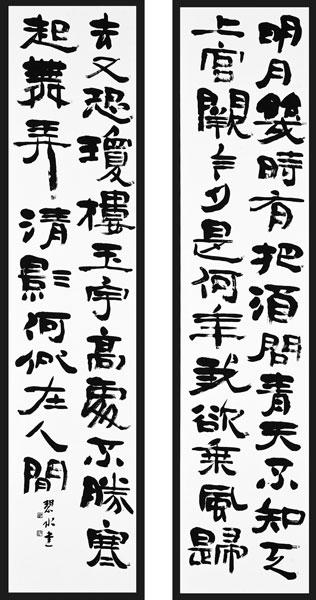 明月幾時有把酒問青天不知天
上宮闕今夕是何年我欲乘風歸
去又恐瓊樓玉宇高處不勝寒
起舞弄清影何似在人間
碧水書